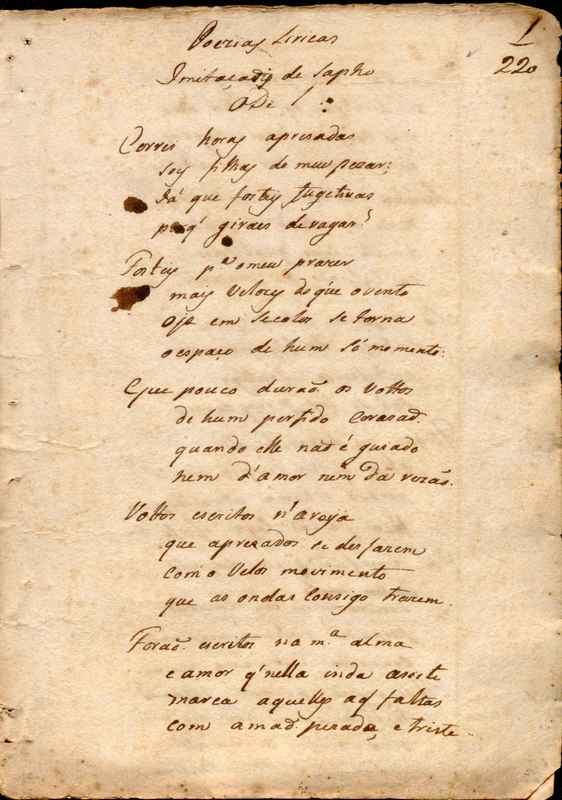 1
220
Poezias Liricas
Imitação de Sapho
Ode 1
Correi horas apresadas
sois filhas de meu pezar;
Já que fosteis fugetivas
porq' giraes devagar?
Fosteis pª o meu prazer
mais velozes do q'ue o vento
oje em secolos se torna
o espaço de hum só momento:
Que pouco durão os Vottos
de hum perfido Corasaõ
quando elle naõ é guiado
nem d'amor nem da rezaõ.
Vottos escritos n'aréya
que apresados se desfazem
com o Veloz movimento
que as ondas Consigo trazem.
Foraõ escritos na mª alma
e amor q' nella inda aseste
marca aquelles a q' faltas
com a maõ pezada, e triste.